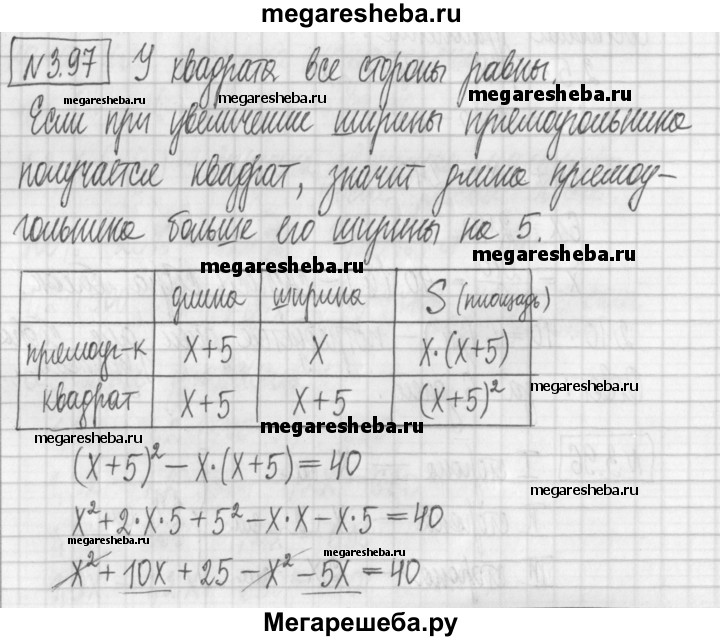 megaresheba.ru
N3.97 У квадрата все стороны равны.
megaresheba.ru megaresheba.ru megaresheba.ru
Если при увеличении ширины прямоугольника
получается квадрат, значит длина прямоу-
гольника больше его ширины на 5.
megaresheba.ru
длина ширина S (площадь)
прямоуг-к x+5 x x·(x+5)
megaresheba.ru
квадрат x+5 x+5 (x+5)²
megaresheba.ru megaresheba.ru
(x+5)² - x·(x+5) = 40
megaresheba.ru
x²+2·x·5+5²-x·x-x·5=40
megaresheba.ru megaresheba.ru
x²+10x+25-x²-5x=40
Мегарешеба.ру